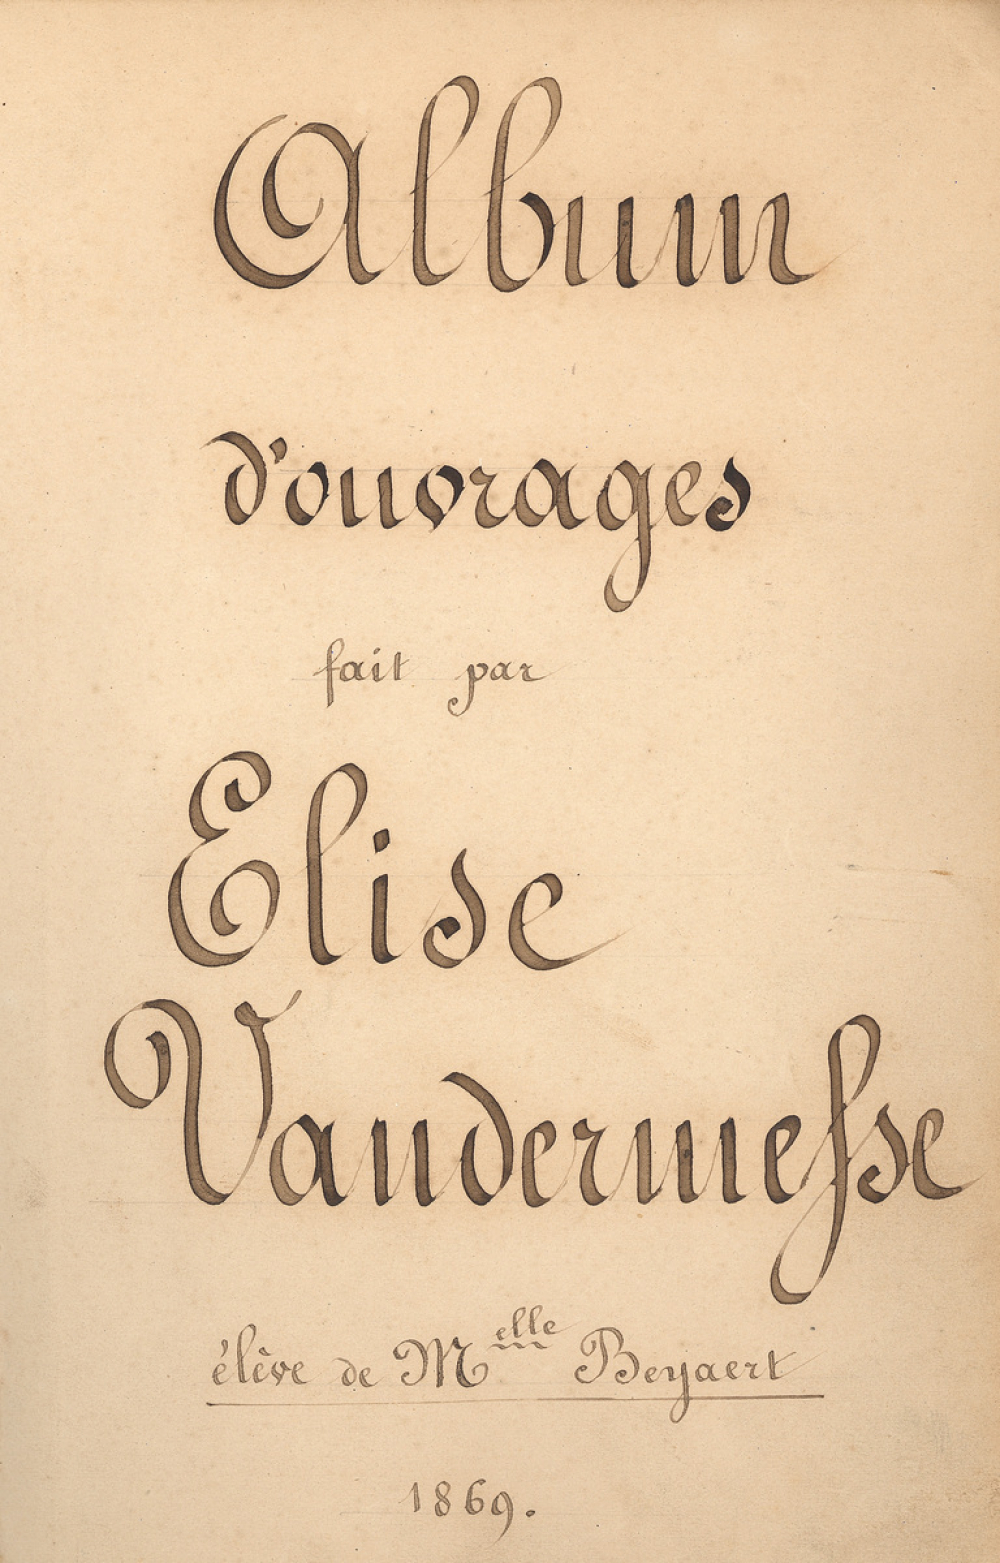 Album
d'ouvrages
fait par
Elise
Vandermesse
élève de Melle Beyaert
1869.